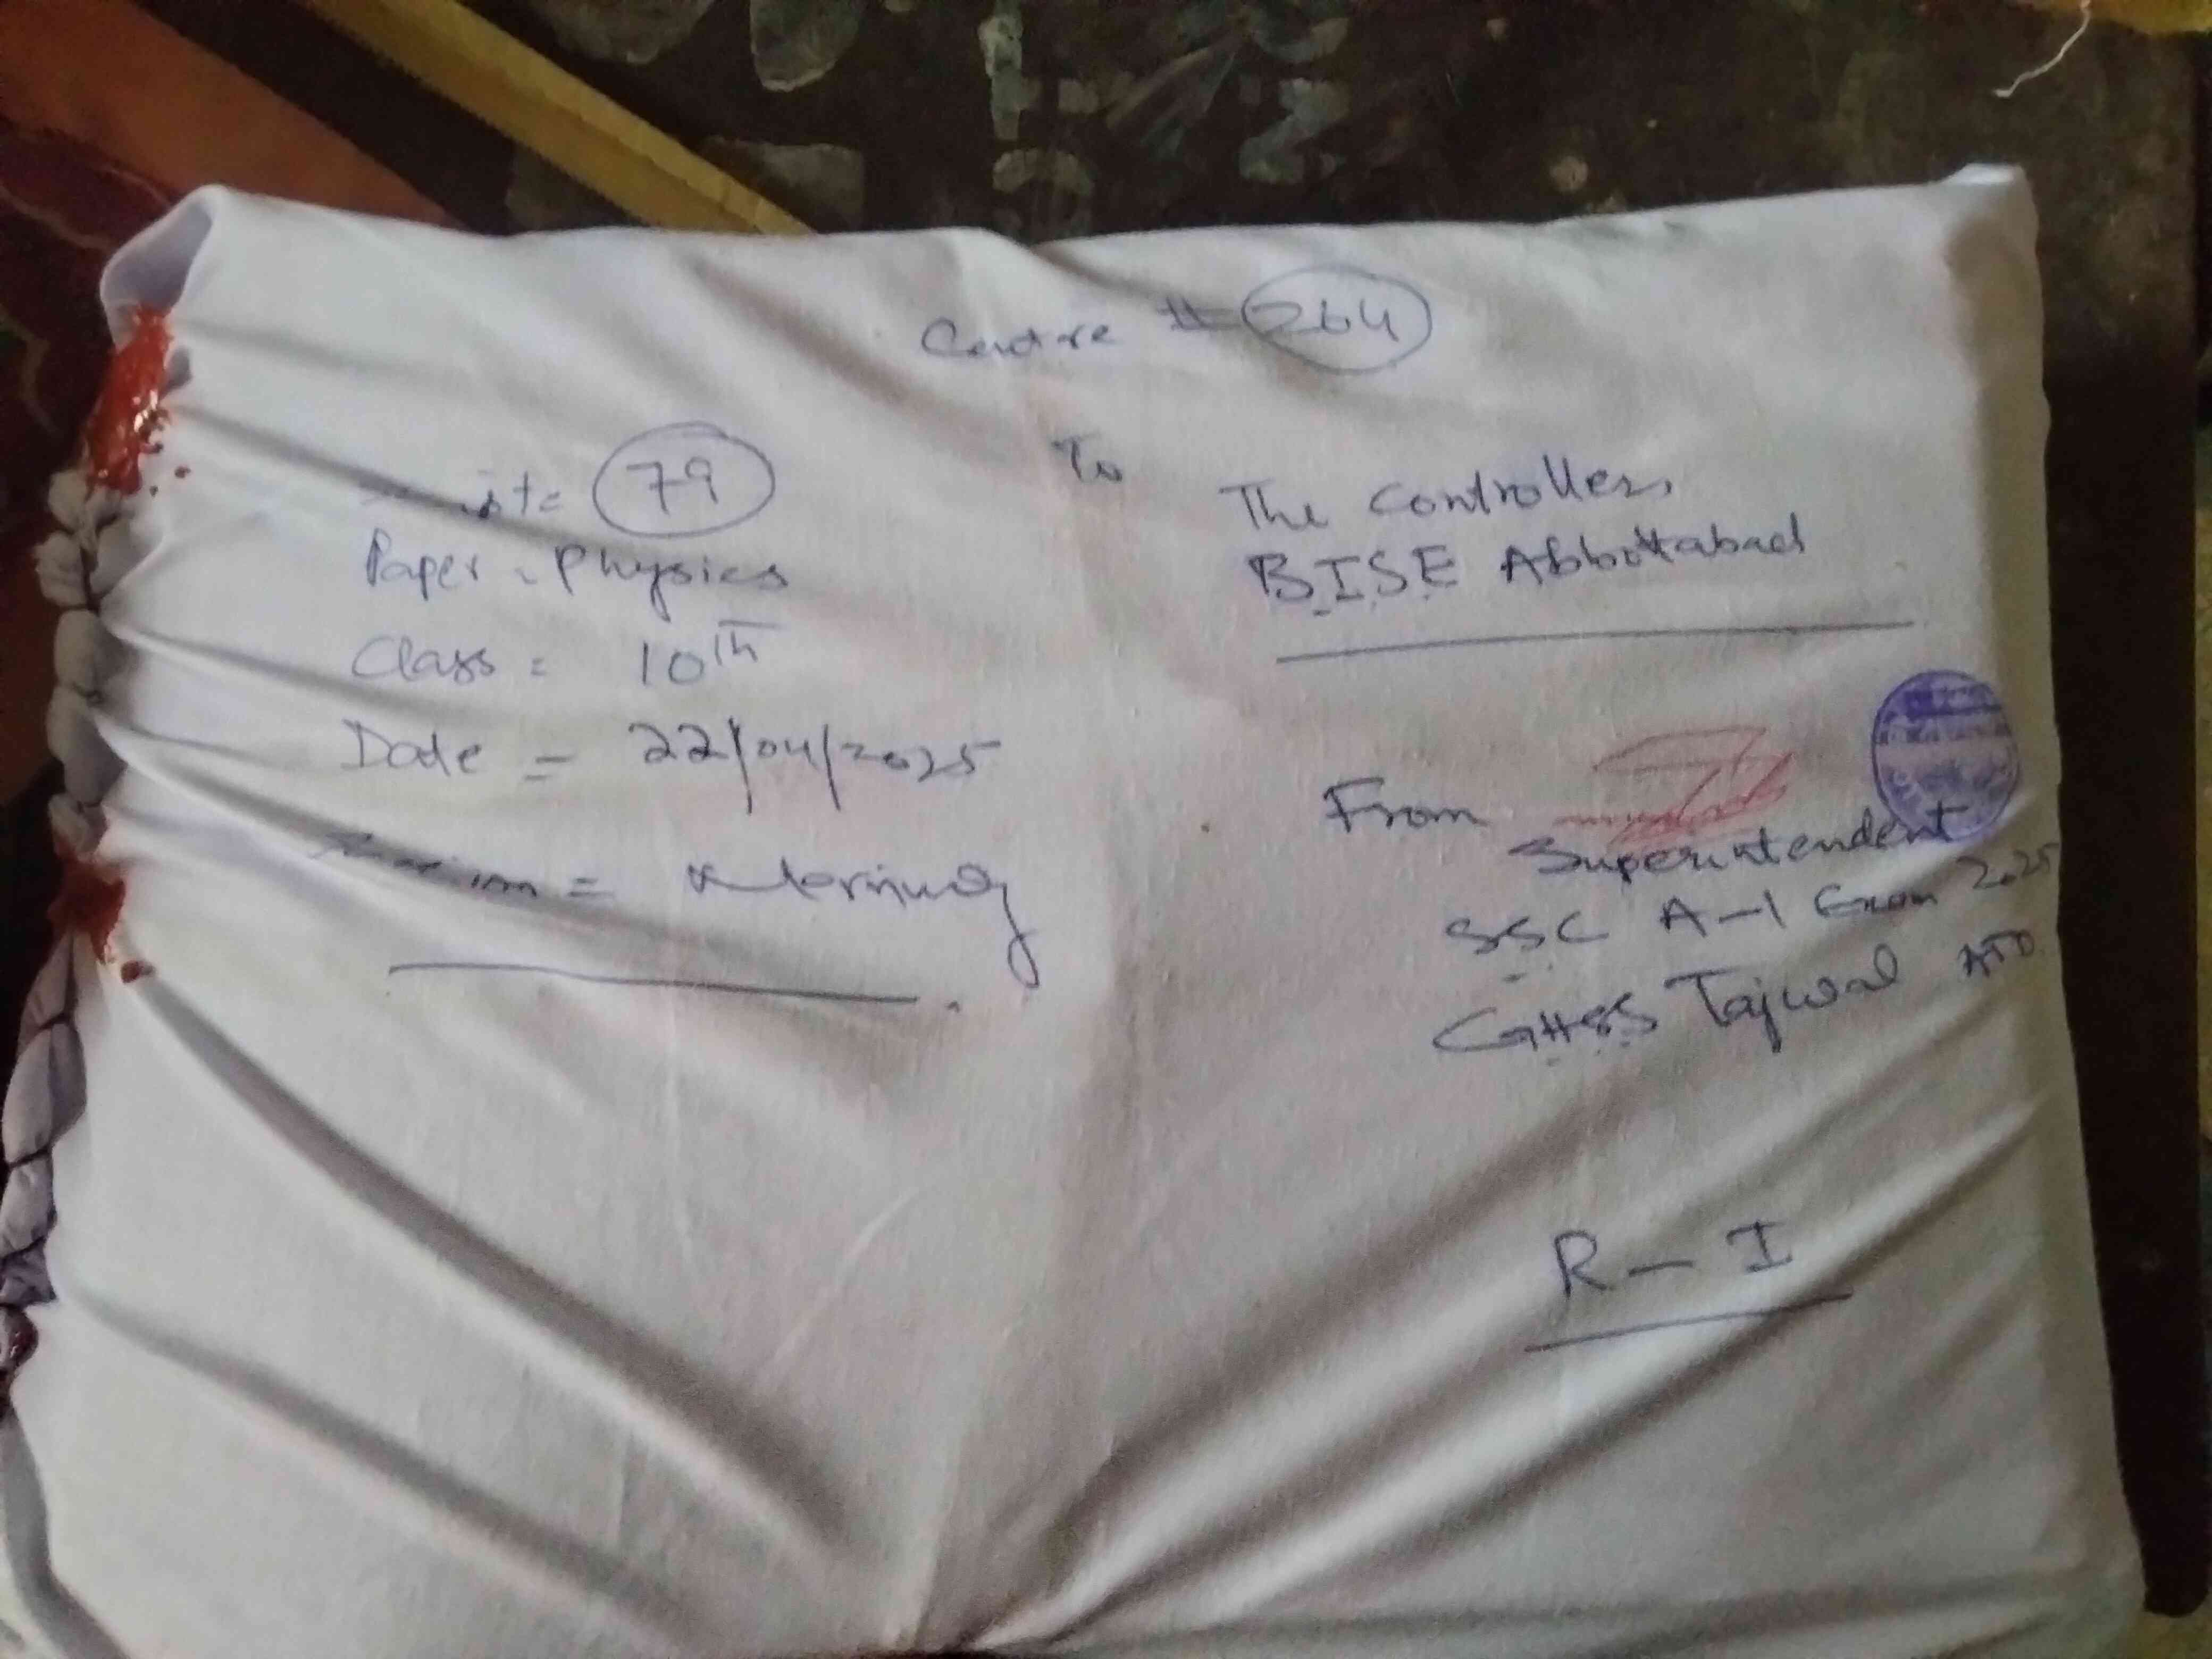 Centre # 264
79
Paper = Physics
Class = 10th
Date = 22/04/2025
= Morning
To
The Controller,
B.I.S.E Abbottabad
From
Superintendent
SSC A-I Exam 2025
GHSS Tajwal ATD.
R-I